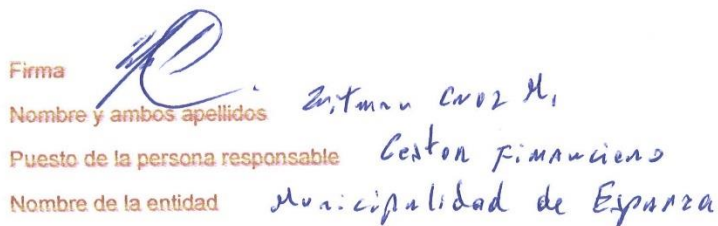 Firma
Nombre y ambos apellidos Witman Cruz M.
Puesto de la persona responsable Gestor Financiero
Nombre de la entidad Municipalidad de Esparza